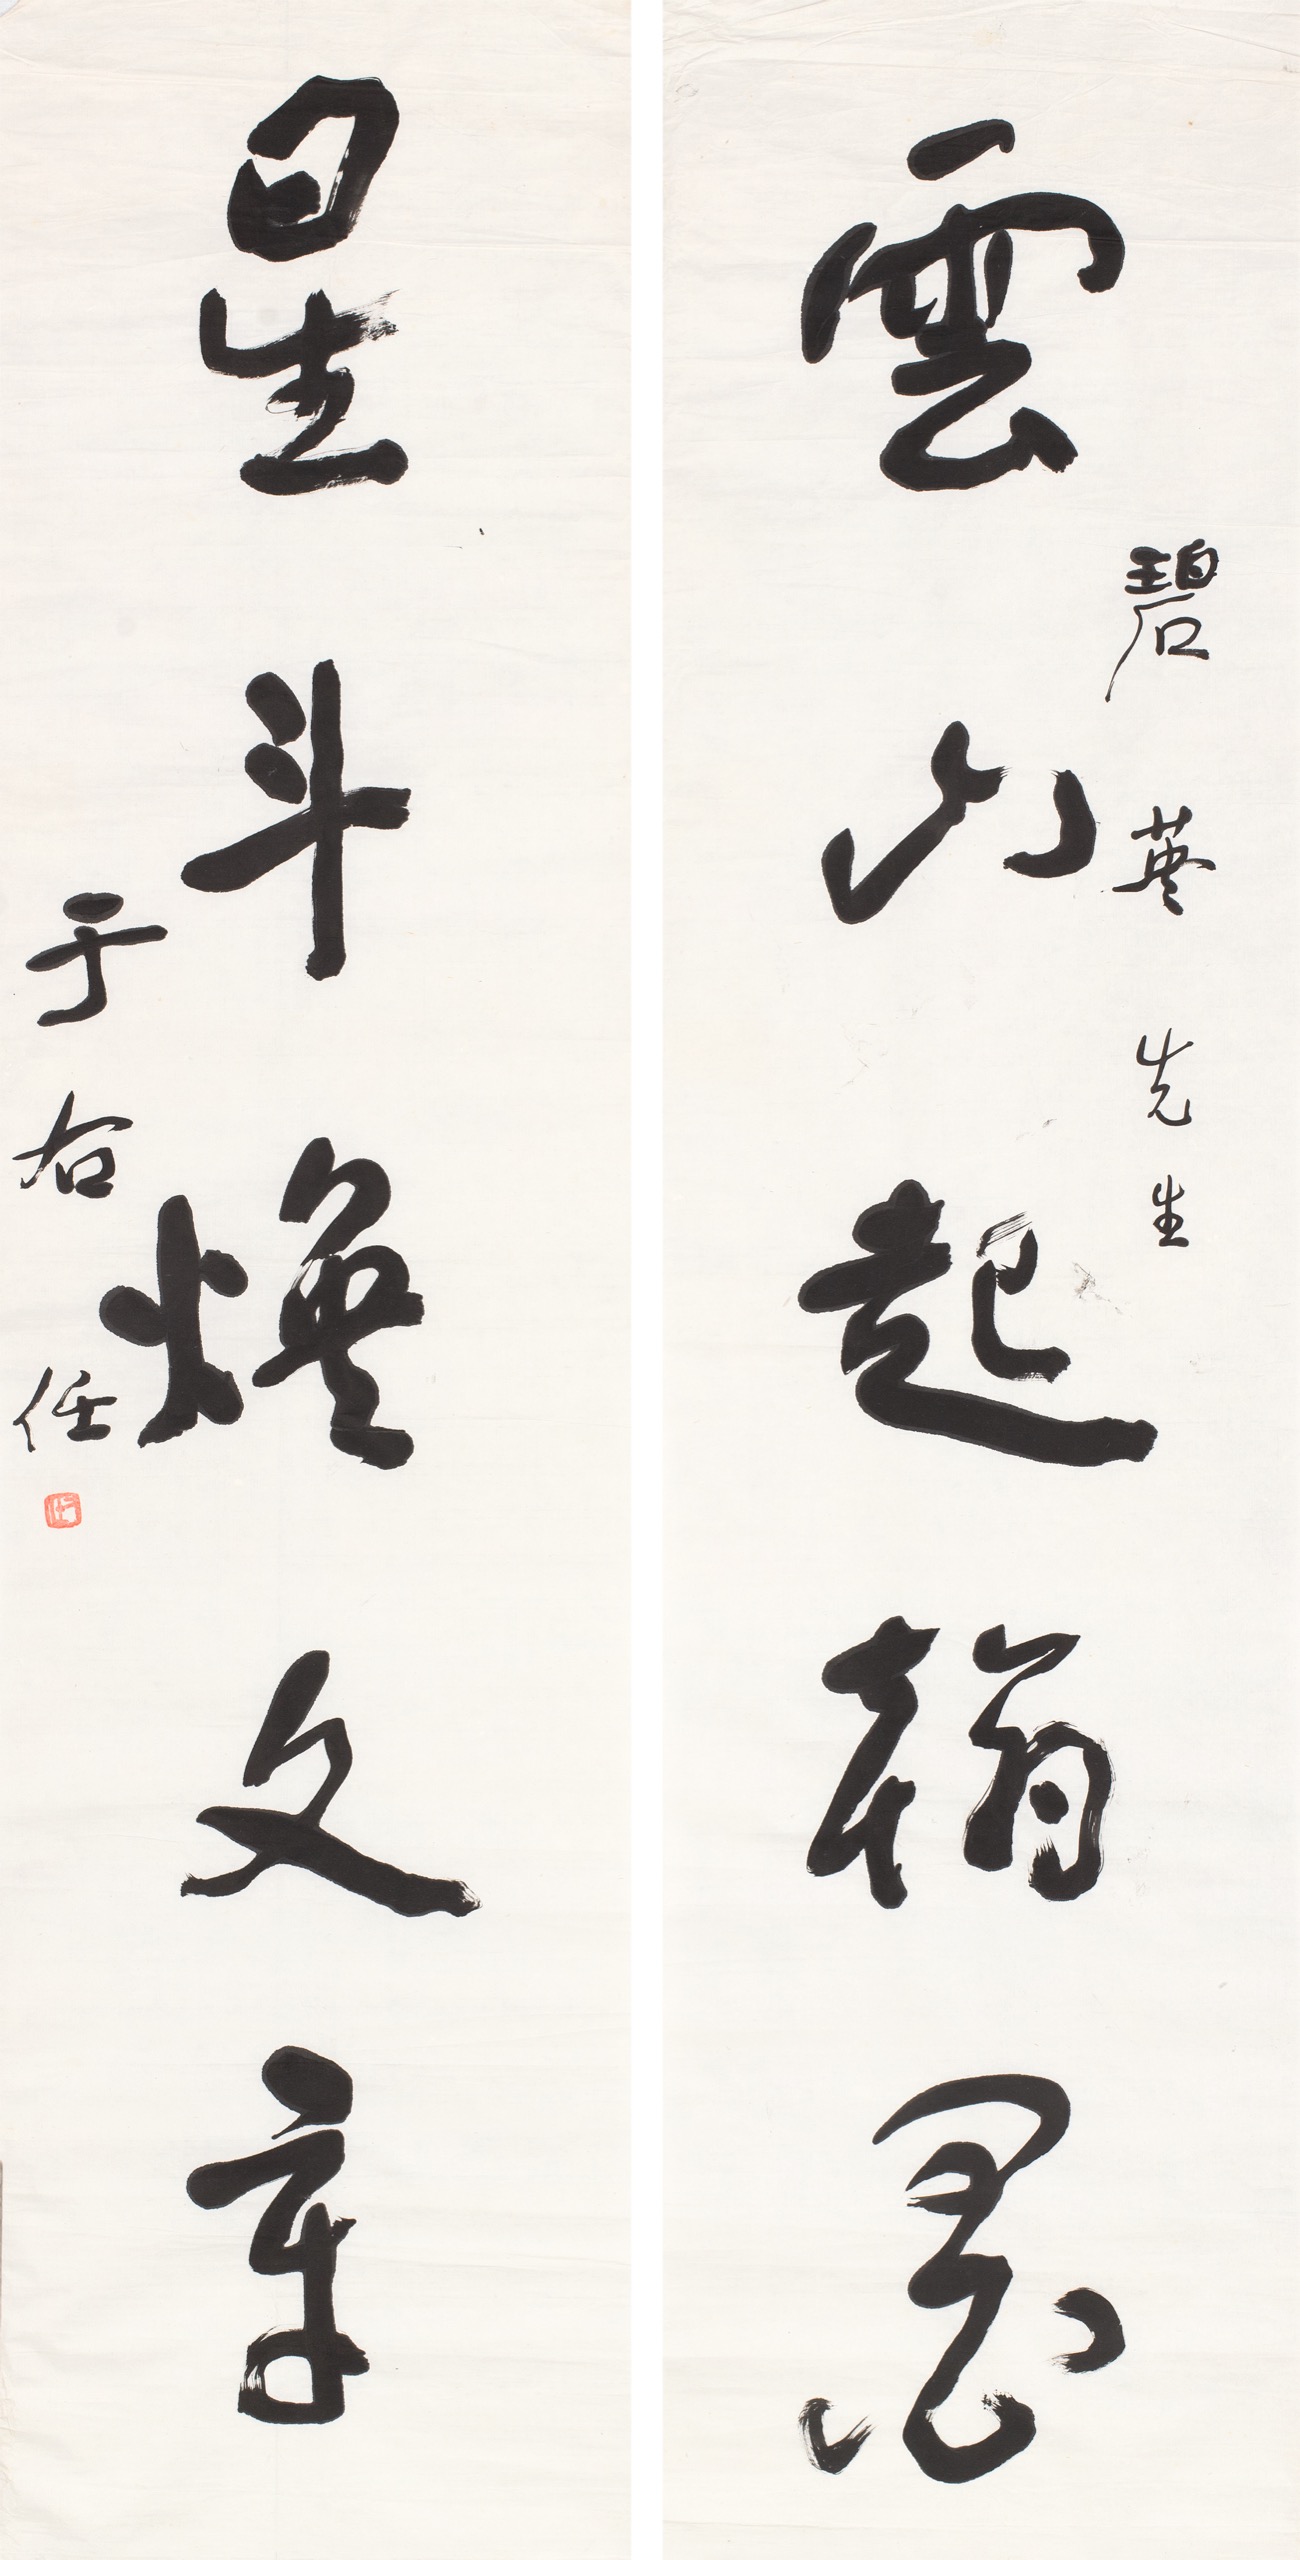 雲山起翰墨
碧英先生
星斗煥文章
于右任